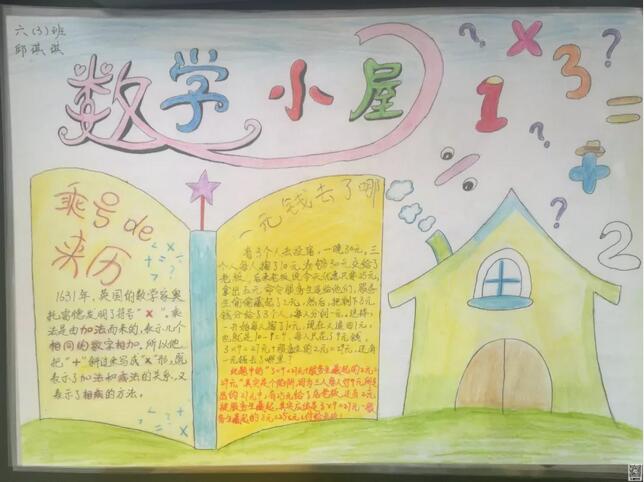 六(3)班
邱琪琪
数学小屋
乘号de
来历
1631年,英国的数学家奥
托雷德发明了符号"×"。乘
法是由加法而来的,表示几个
相同的数字相加。所以他
把"+"斜过来写成"×"形,既
表示了加法和乘法的关系,又
表示了相乘的方法。
一元钱去了哪
有3个人去投宿,一晚30元,三
个人每人掏了10元凑够30元交给了
老板,后来老板说今天优惠只要25元,
拿出5元命令服务生退给他们,服务
生偷偷藏起了2元,然后,把剩下的3元
钱分给了3个人,每人分到一元,这样,
一开始每人掏了10元,现在又退回1元,
也就是10-1=9,每人只花了9元钱,
3×9=27元+服务生的2元=29元,还有
一元钱去了哪里?
此题中的"3×9=27元+服务生藏起的2元=
29元"其实是个陷阱,因为三人每人付9元所
1
3
2